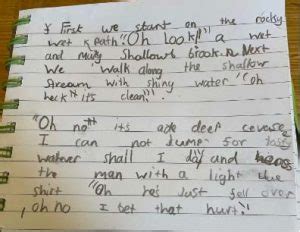 First we start on the rocky
wet path "Oh look!!" a wet
and muddy shallow brook. Next
We walk along the shallow
Stream with shiny water "Oh
heck its clean!"
"Oh no its a deef
I can not Jump for
watever shall I day and
the man with a light blue
shirt "Oh he's Just fell over
, oh no I bet that hurt!"